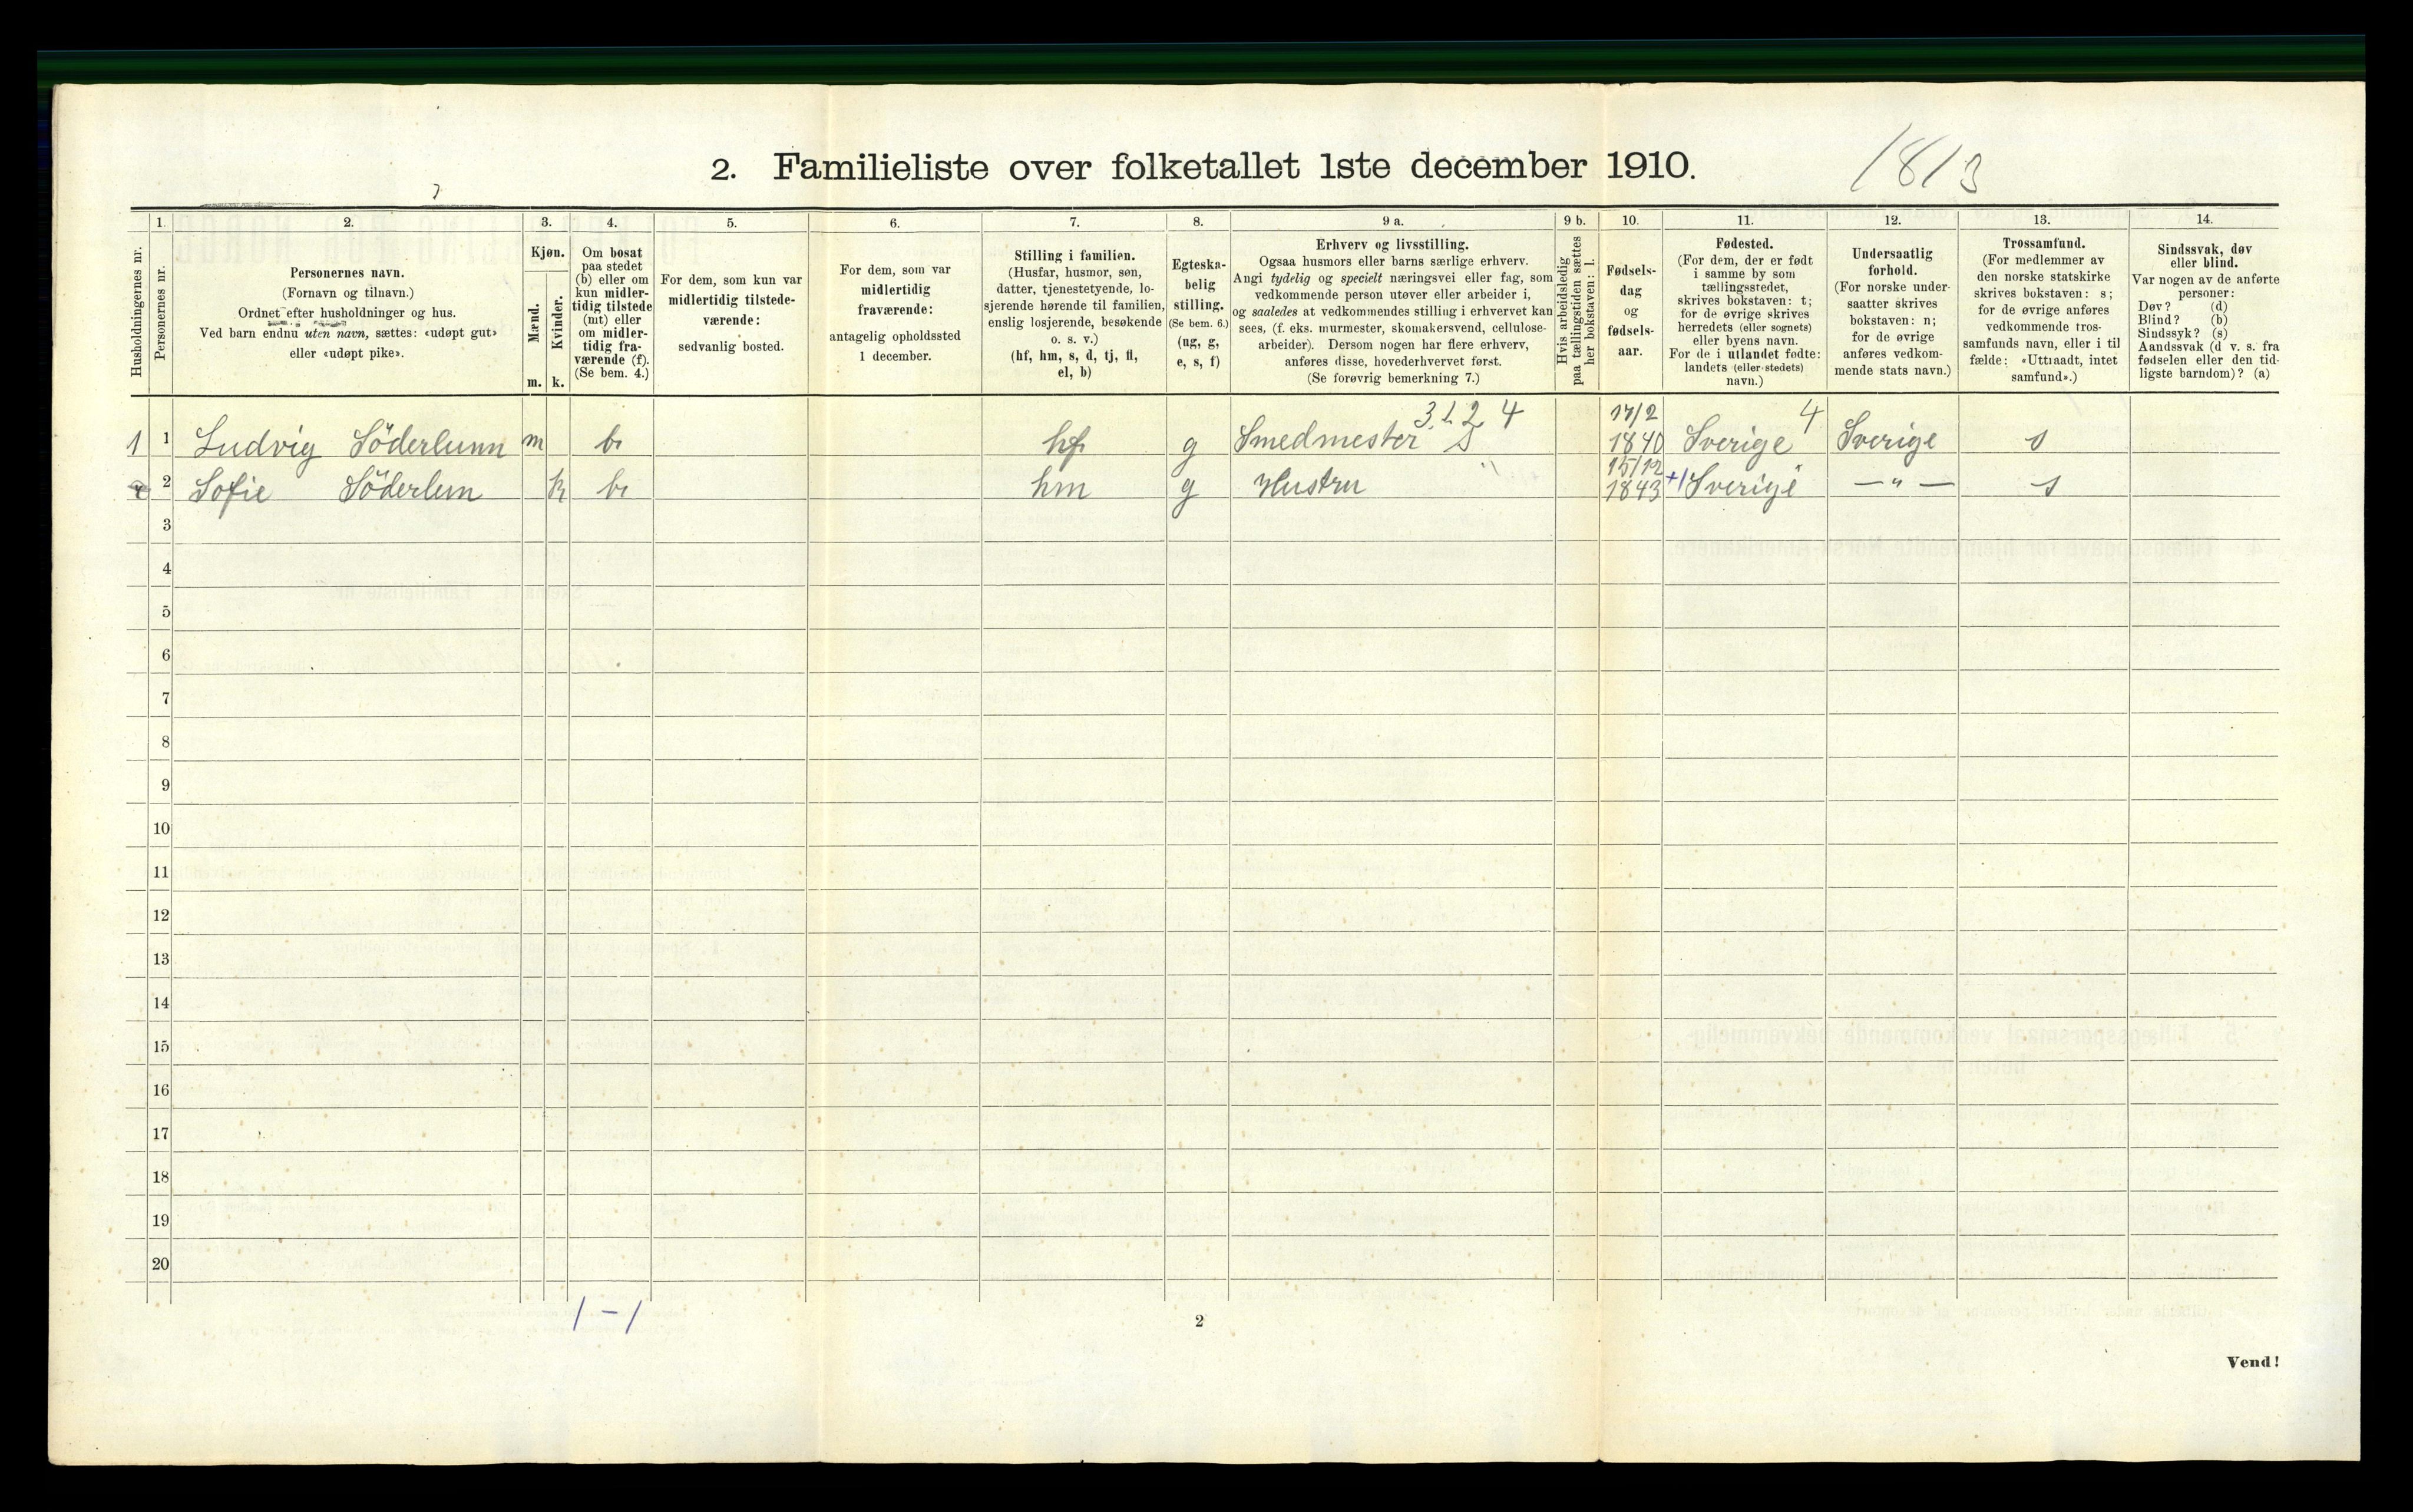 2. Familieliste over folketallet 1ste december 1910.
1813
1.
2.
3.
4.
5.
6.
7.
8.
9 a.
9 b.
10.
11.
12.
13.
14.
Husholdningernes nr.
Personernes nr.
Personernes navn.
(Fornavn og tilnavn.)
Ordnet efter husholdninger og hus.
Ved barn endnu uten navn, sættes: «udøpt gut»
eller «udøpt pike».
Kjøn.
Mænd.
Kvinder.
m. k.
Om bosat
paa stedet
(b) eller om
kun midler-
tidig tilstede
(mt) eller
om midler-
tidig fra-
værende (f).
(Se bem. 4.)
For dem, som kun var
midlertidig tilstede-
værende:
sedvanlig bosted.
For dem, som var
midlertidig
fraværende:
antagelig opholdssted
1 december.
Stilling i familien.
(Husfar, husmor, søn,
datter, tjenestetyende, lo-
sjerende hørende til familien,
enslig losjerende, besøkende
o. s. v.)
(hf, hm, s, d, tj, fl,
el, b)
Egteska-
belig
stilling.
(Se bem. 6.)
(ug, g,
e, s, f)
Erhverv og livsstilling.
Ogsaa husmors eller barns særlige erhverv.
Angi tydelig og specielt næringsvei eller fag, som
vedkommende person utøver eller arbeider i,
og saaledes at vedkommendes stilling i erhvervet kan
sees, (f. eks. murmester, skomakersvend, cellulose-
arbeider). Dersom nogen har flere erhverv,
anføres disse, hovederhvervet først.
(Se forøvrig bemerkning 7.)
Hvis arbeidsledig
paa tællingstiden sættes
her bokstaven: l.
Fødsels-
dag
og
fødsels-
aar.
Fødested.
(For dem, der er født
i samme by som
tællingsstedet,
skrives bokstaven: t;
for de øvrige skrives
herredets (eller sognets)
eller byens navn.
For de i utlandet fødte:
landets (eller stedets)
navn.)
Undersaatlig
forhold.
(For norske under-
saatter skrives
bokstaven: n;
for de øvrige
anføres vedkom-
mende stats navn.)
Trossamfund.
(For medlemmer av
den norske statskirke
skrives bokstaven: s;
for de øvrige anføres
vedkommende tros-
samfunds navn, eller i til
fælde: «Uttraadt, intet
samfund».)
Sindssvak, døv
eller blind.
Var nogen av de anførte
personer:
Døv? (d)
Blind? (b)
Sindssyk? (s)
Aandssvak (d v. s. fra
fødselen eller den tid-
ligste barndom)? (a)
3.1.2 4 17/2 4
1 1 Ludvig Söderlunn m b hf g Smedmester S 1840 Sverige Sverige s
15/12
2 Sofie Söderlun k b hm g Hustru 1843 +1 Sverige — " — s
3
4
5
6
7
8
9
10
11
12
13
14
15
16
17
18
19
20
1 - 1
2
Vend!